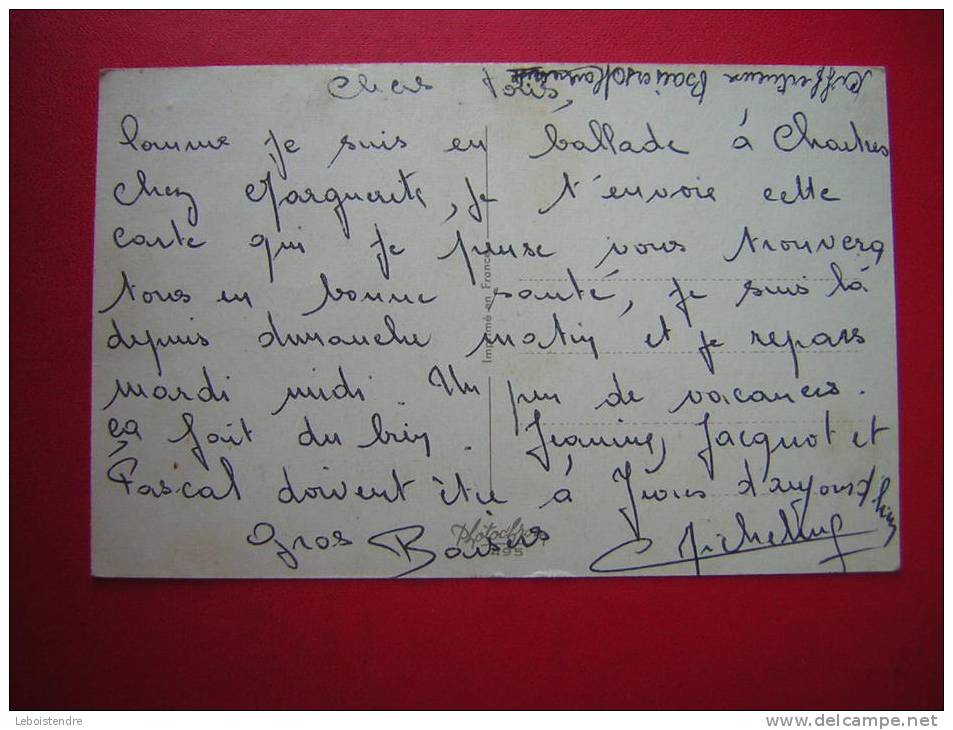 Chers Tous,
Affectueux Baisers
Comme je suis en ballade à Chartres
chez Marguerite, je t'envoie cette
carte qui je pense vous trouvera
tous en bonne santé, je suis là
depuis dimanche matin et je repars
mardi midi. Un peu de vacances.
ça fait du bien. Jeanine, Jacquot et
Pascal doivent être à Tours d'aujourd'hui
Gros Baisers Micheline
Imprimé en France
Photochrom
495
Leboistendre
www.delcampe.net